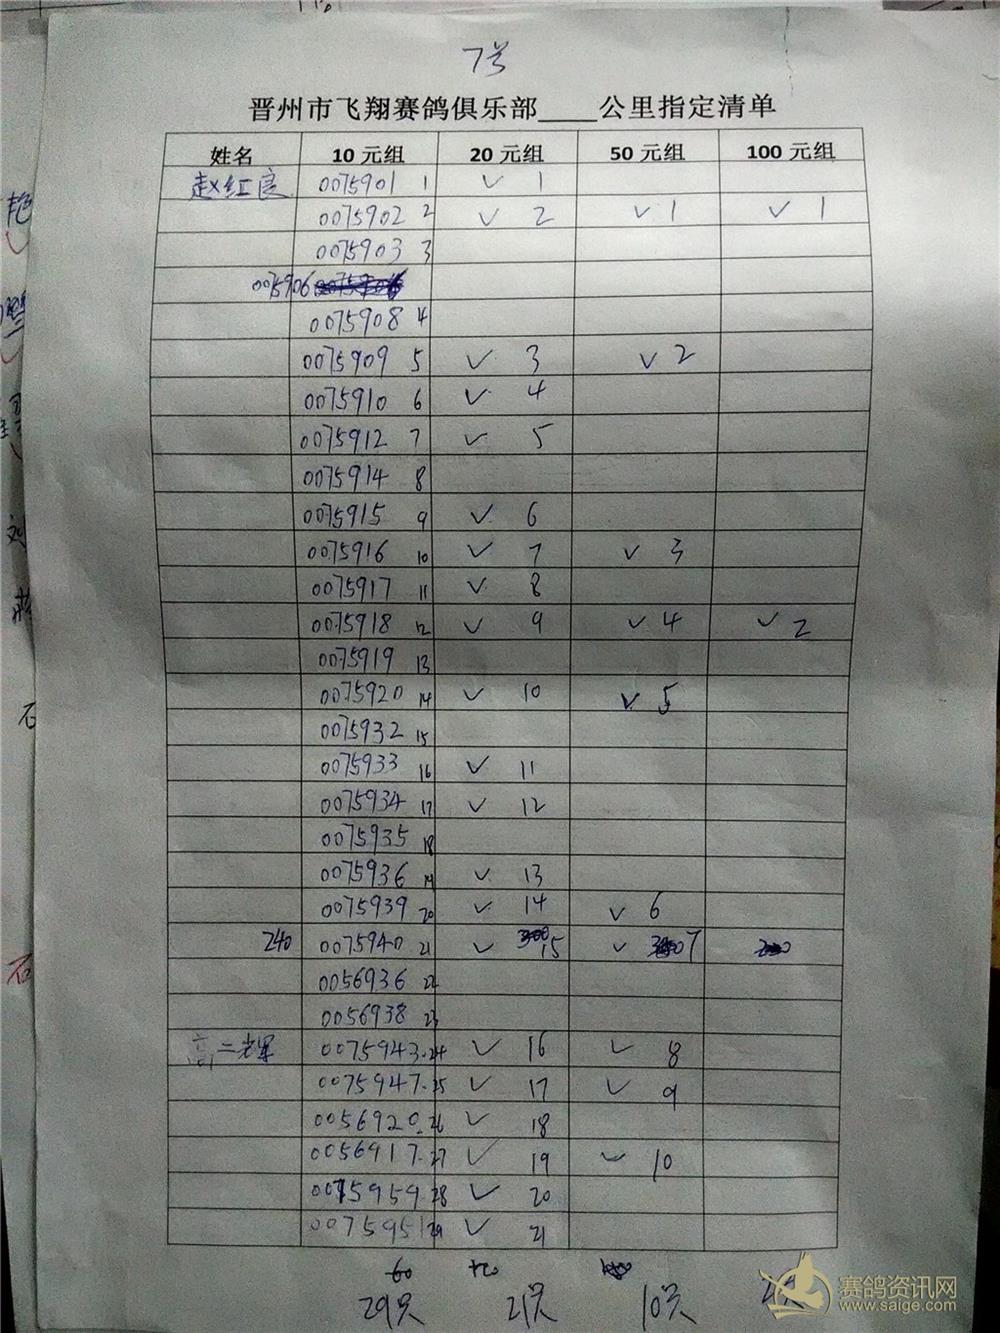 7号
晋州市飞翔赛鸽俱乐部____公里指定清单
姓名 10 元组 20 元组 50 元组 100 元组
赵红良 0075901 1 ✓ 1
0075902 2 ✓ 2 ✓ 1 ✓ 1
0075903 3
0075906
0075908 4
0075909 5 ✓ 3 ✓ 2
0075910 6 ✓ 4
0075912 7 ✓ 5
0075914 8
0075915 9 ✓ 6
0075916 10 ✓ 7 ✓ 3
0075917 11 ✓ 8
0075918 12 ✓ 9 ✓ 4 ✓ 2
0075919 13
0075920 14 ✓ 10 ✓ 5
0075932 15
0075933 16 ✓ 11
0075934 17 ✓ 12
0075935 18
0075936 19 ✓ 13
0075939 20 ✓ 14 ✓ 6
240 0075940 21 ✓ 15 ✓ 7
0056936 22
0056938 23
高二 0075943 24 ✓ 16 ✓ 8
0075947 25 ✓ 17 ✓ 9
0056920 26 ✓ 18
0056917 27 ✓ 19 ✓ 10
0075959 28 ✓ 20
0075951 29 ✓ 21
29只 21只 10只 2只
赛鸽资讯网
www.saige.com